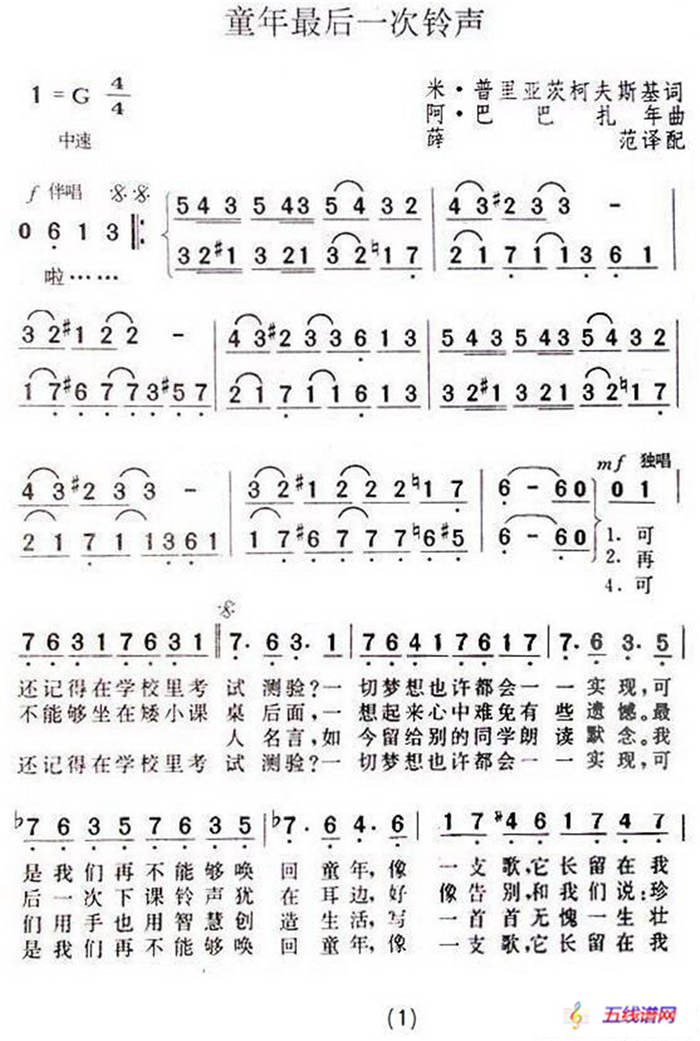 童年最后一次铃声
1 = G 4/4
米·普里亚茨柯夫斯基词
阿·巴巴扎年曲
薛范译配
中速
f 伴唱
0 6 1 3
5 4 3 5 4 3 5 4 3 2 4 3 #2 3 3 -
3 2 #1 3 2 1 3 2 ♮1 7 2 1 7 1 1 3 6 1
啦……
3 2 #1 2 2 - 4 3 #2 3 3 6 1 3 5 4 3 5 4 3 5 4 3 2
1 7 #6 7 7 3 #5 7 2 1 7 1 1 6 1 3 3 2 #1 3 2 1 3 2 ♮1 7
mf 独唱
4 3 #2 3 3 - 3 2 #1 2 2 2 ♮1 7 6 - 6 0 0 1
2 1 7 1 1 3 6 1 1 7 #6 7 7 7 ♮6 #5 6 - 6 0
1. 可
2. 再
4. 可
7 6 3 1 7 6 3 1 7. 6 3. 1 7 6 4 1 7 6 1 7 7. 6 3. 5
还记得在学校里考试测验?一切梦想也许都会一一实现,可
不能够坐在矮小课桌后面,一想起来心中难免有些遗憾。最
人名言,如今留给别的同学朗读默念。我
还记得在学校里考试测验?一切梦想也许都会一一实现,可
♭7 6 3 5 7 6 3 5 ♭7. 6 4. 6 1 7 #4 6 1 7 4 7
是我们再不能够唤回童年,像一支歌,它长留在我
后一次下课铃声犹在耳边,好像告别,和我们说:珍
们用手也用智慧创造生活,写一首首无愧一生壮
是我们再不能够唤回童年,像一支歌,它长留在我
(1)
五线谱网